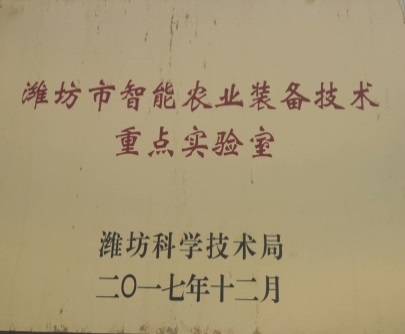 潍坊市智能农业装备技术
重点实验室
潍坊科学技术局
二〇一七年十二月